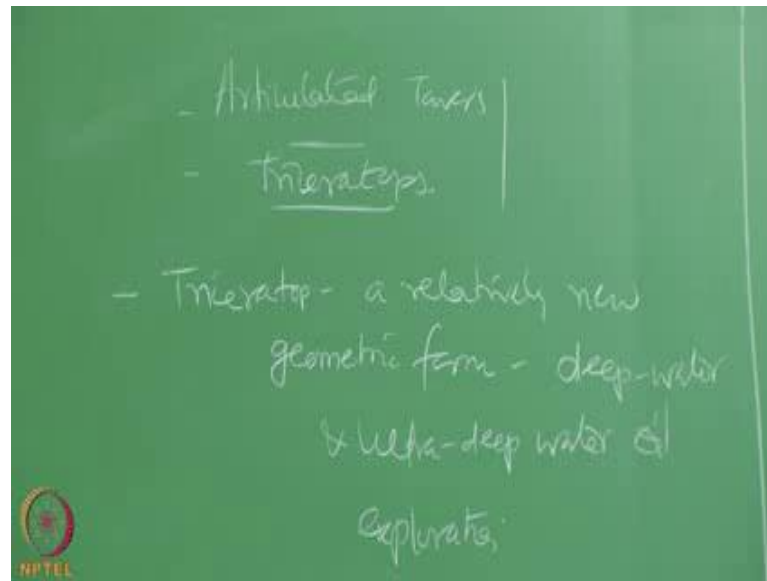 - Articulated Towers
- Triceratops.
- Triceratop - a relatively new
geometric form - deep-water
& Ultra-deep water oil
exploration
NPTEL